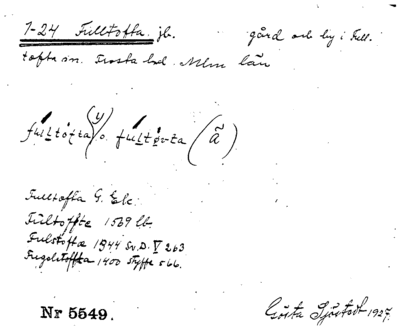 1-24 Fulltofta jb. gård och by i Full-
tofta sn. Frosta hd. Mlm län
(y)
fu̇ltȯfta o. fu̇ltøvta (ã)
Fulltofta G. Ek.
Fultoffte 1569 lb.
Fulstoffta 1544 Sv.D. V 263
Fugelstoffta 1400 Styffe s 66.
Nr 5549. Gösta Sjöstedt 1927.